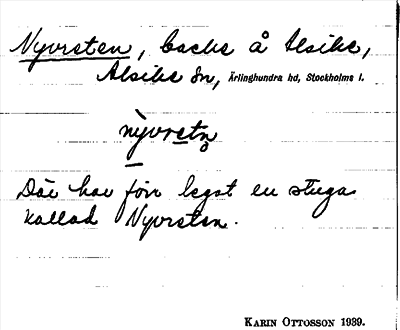 Nyvreten, backe å Alsike,
Alsike Sn, Ärlinghundra hd, Stockholms l.
nỳvretn̥
Där har förr legat en stuga
kallad Nyvreten.
KARIN OTTOSSON 1939.